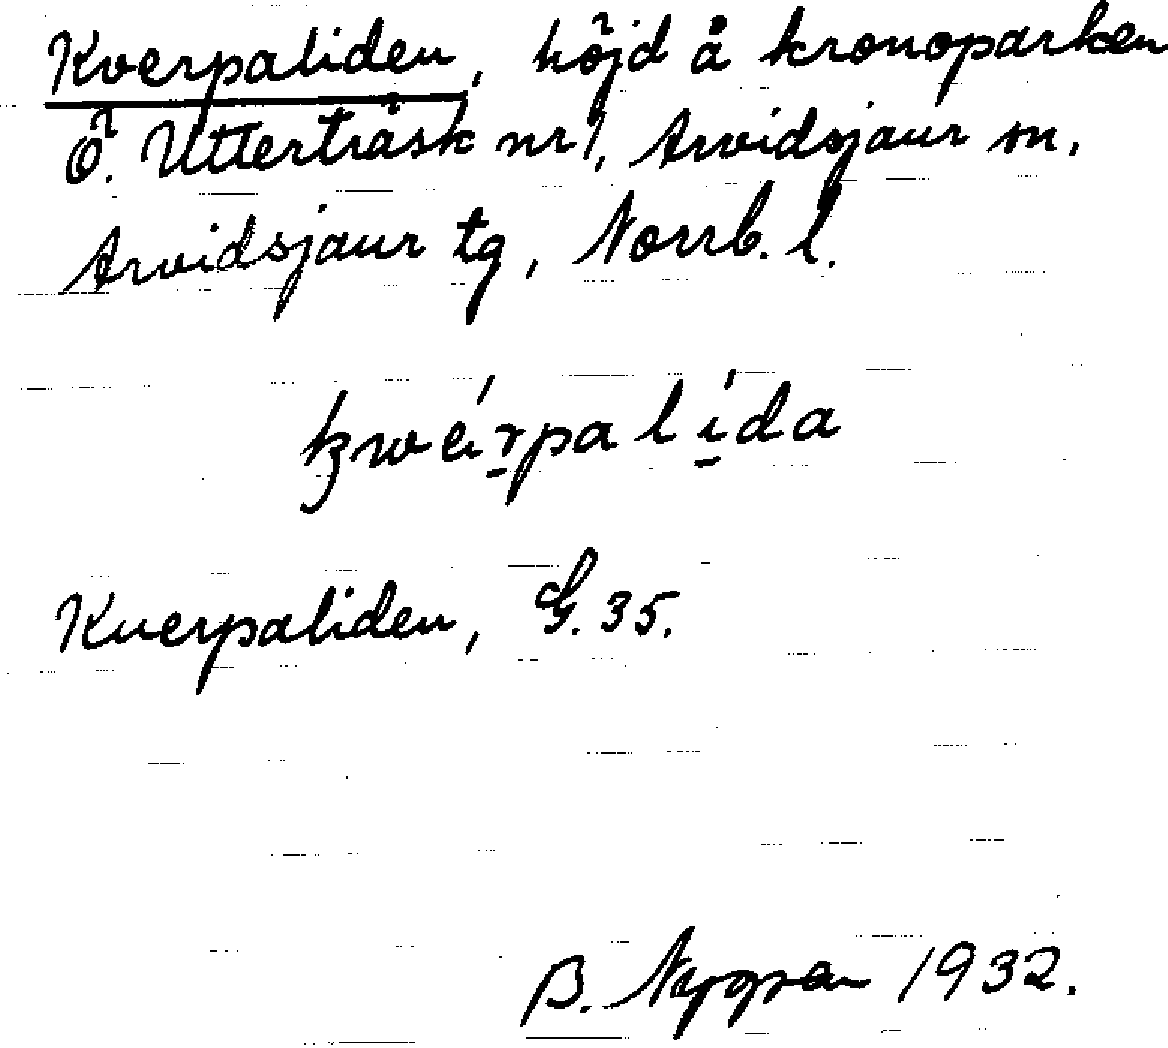 Kverpaliden, höjd å kronoparken
Ö. Utterträsk nr 1, Arvidsjaur sn,
Arvidsjaur tg, Norrb. l.
Kverpaliden, G. 35.
B. Nygren 1932.